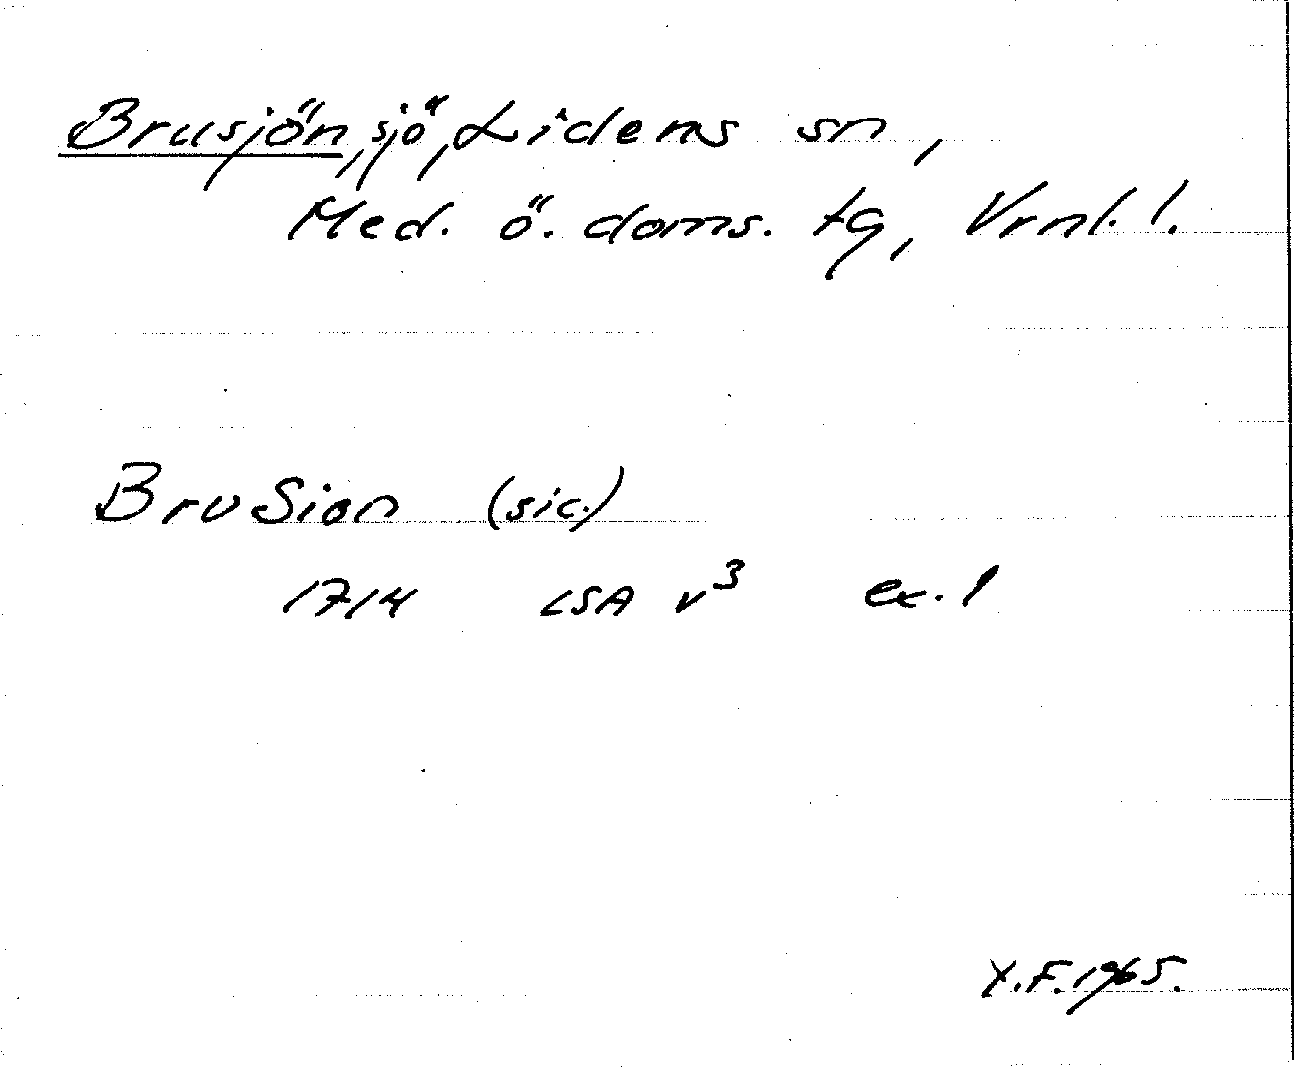 Brusjön, sjö, Lidens sn,
Med. ö. doms. tg, Vrnl. l.
BruSion (sic.)
1714 LSA v³ ex. 1
Y.F.1965.